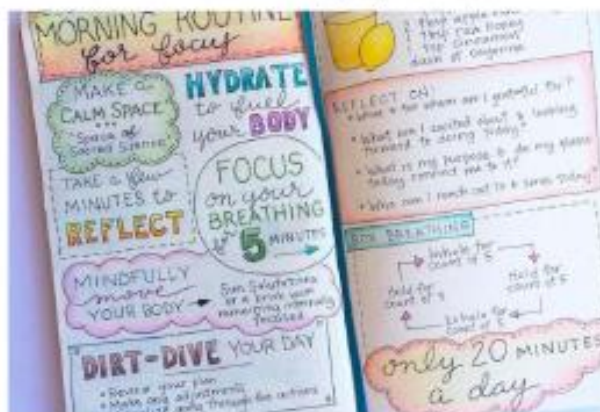 MORNING ROUTINE
for focus
MAKE a
CALM SPACE
Space of
Sacred Silence
HYDRATE
to fuel
your BODY
TAKE a few
MINUTES to
REFLECT
FOCUS
on your
BREATHING
for 5 MINUTES
MINDFULLY
move
YOUR BODY
Sun Salutations
or a brisk walk
remaining internally
focused
DIRT-DIVE YOUR DAY
• Review your plan
• Make any adjustments
1 tbsp raw honey
1 tsp cinnamon
dash of
REFLECT ON:
• What & for whom am I grateful for?
• What am I excited about & looking
forward to doing today?
• What is my purpose & do my plans
today connect me to it?
• Who can I reach out to & serve today?
BOX BREATHING
Inhale for
count of 5
Hold for
count of 5
Exhale for
count of 5
Hold for
count of 5
only 20 MINUTES
a day